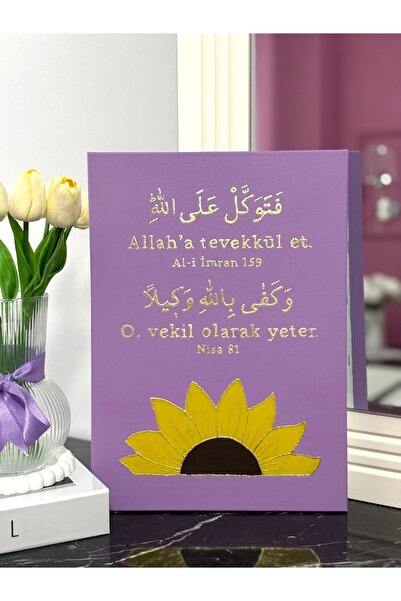 فَتَوَكَّلْ عَلَى اللّٰهِ
Allah'a tevekkül et.
Al-i İmran 159
وَكَفٰى بِاللّٰهِ وَكٖيلًا
O, vekil olarak yeter.
Nisa 81
L